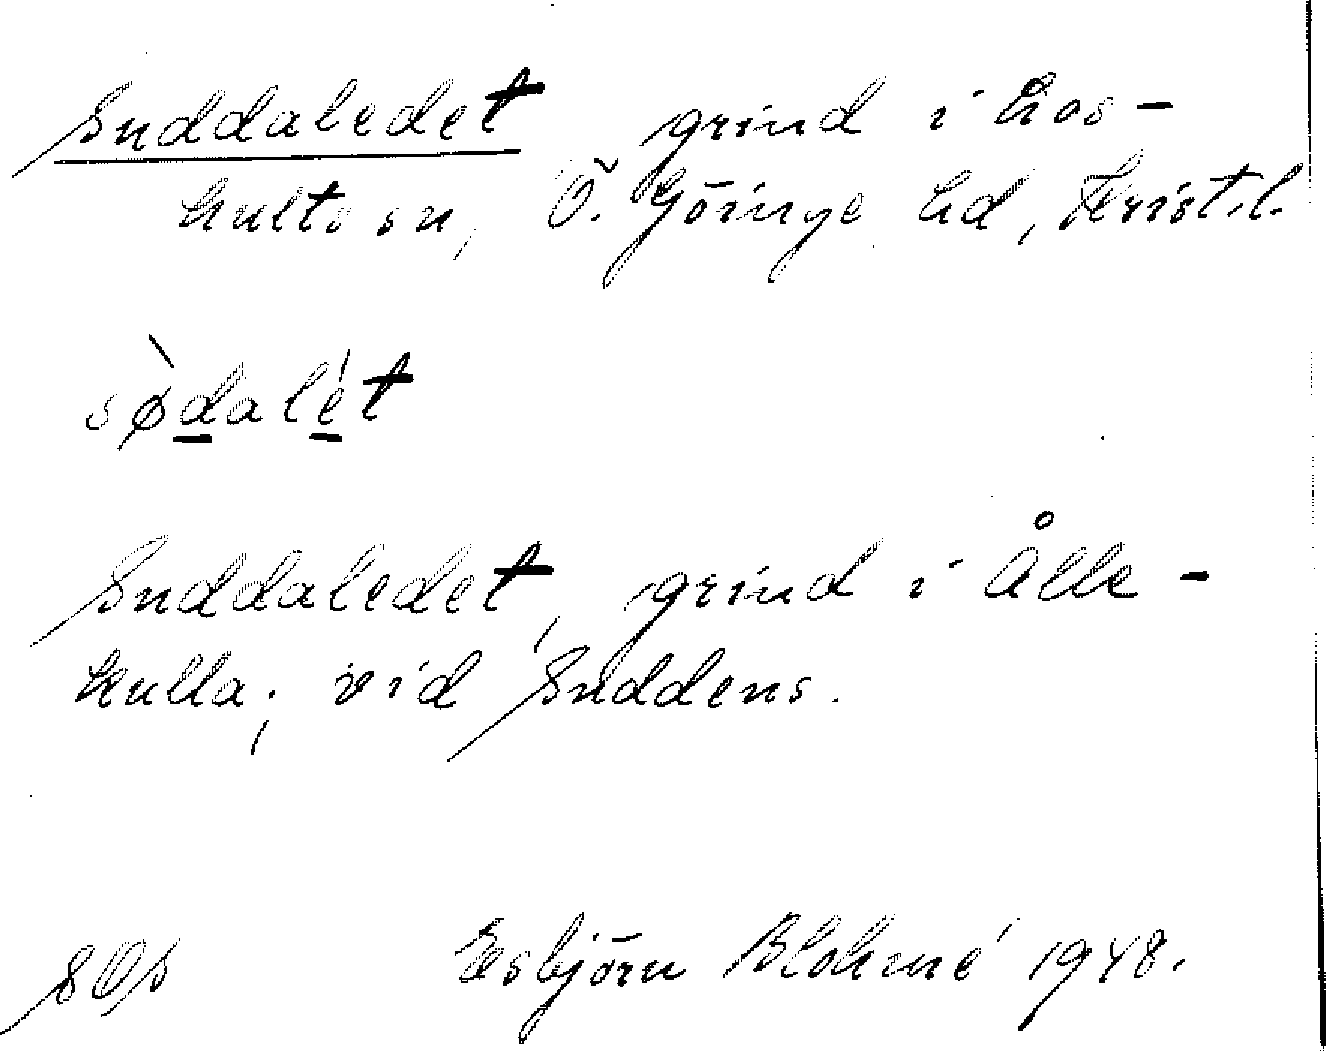 Suddaledet grind i Los-
hults sn, Ö. Göinge hd, Kristl.
sø̀dalét
Suddaledet, grind i Ålle-
kulla; vid Suddens.
Esbjörn Blohmé 1948.